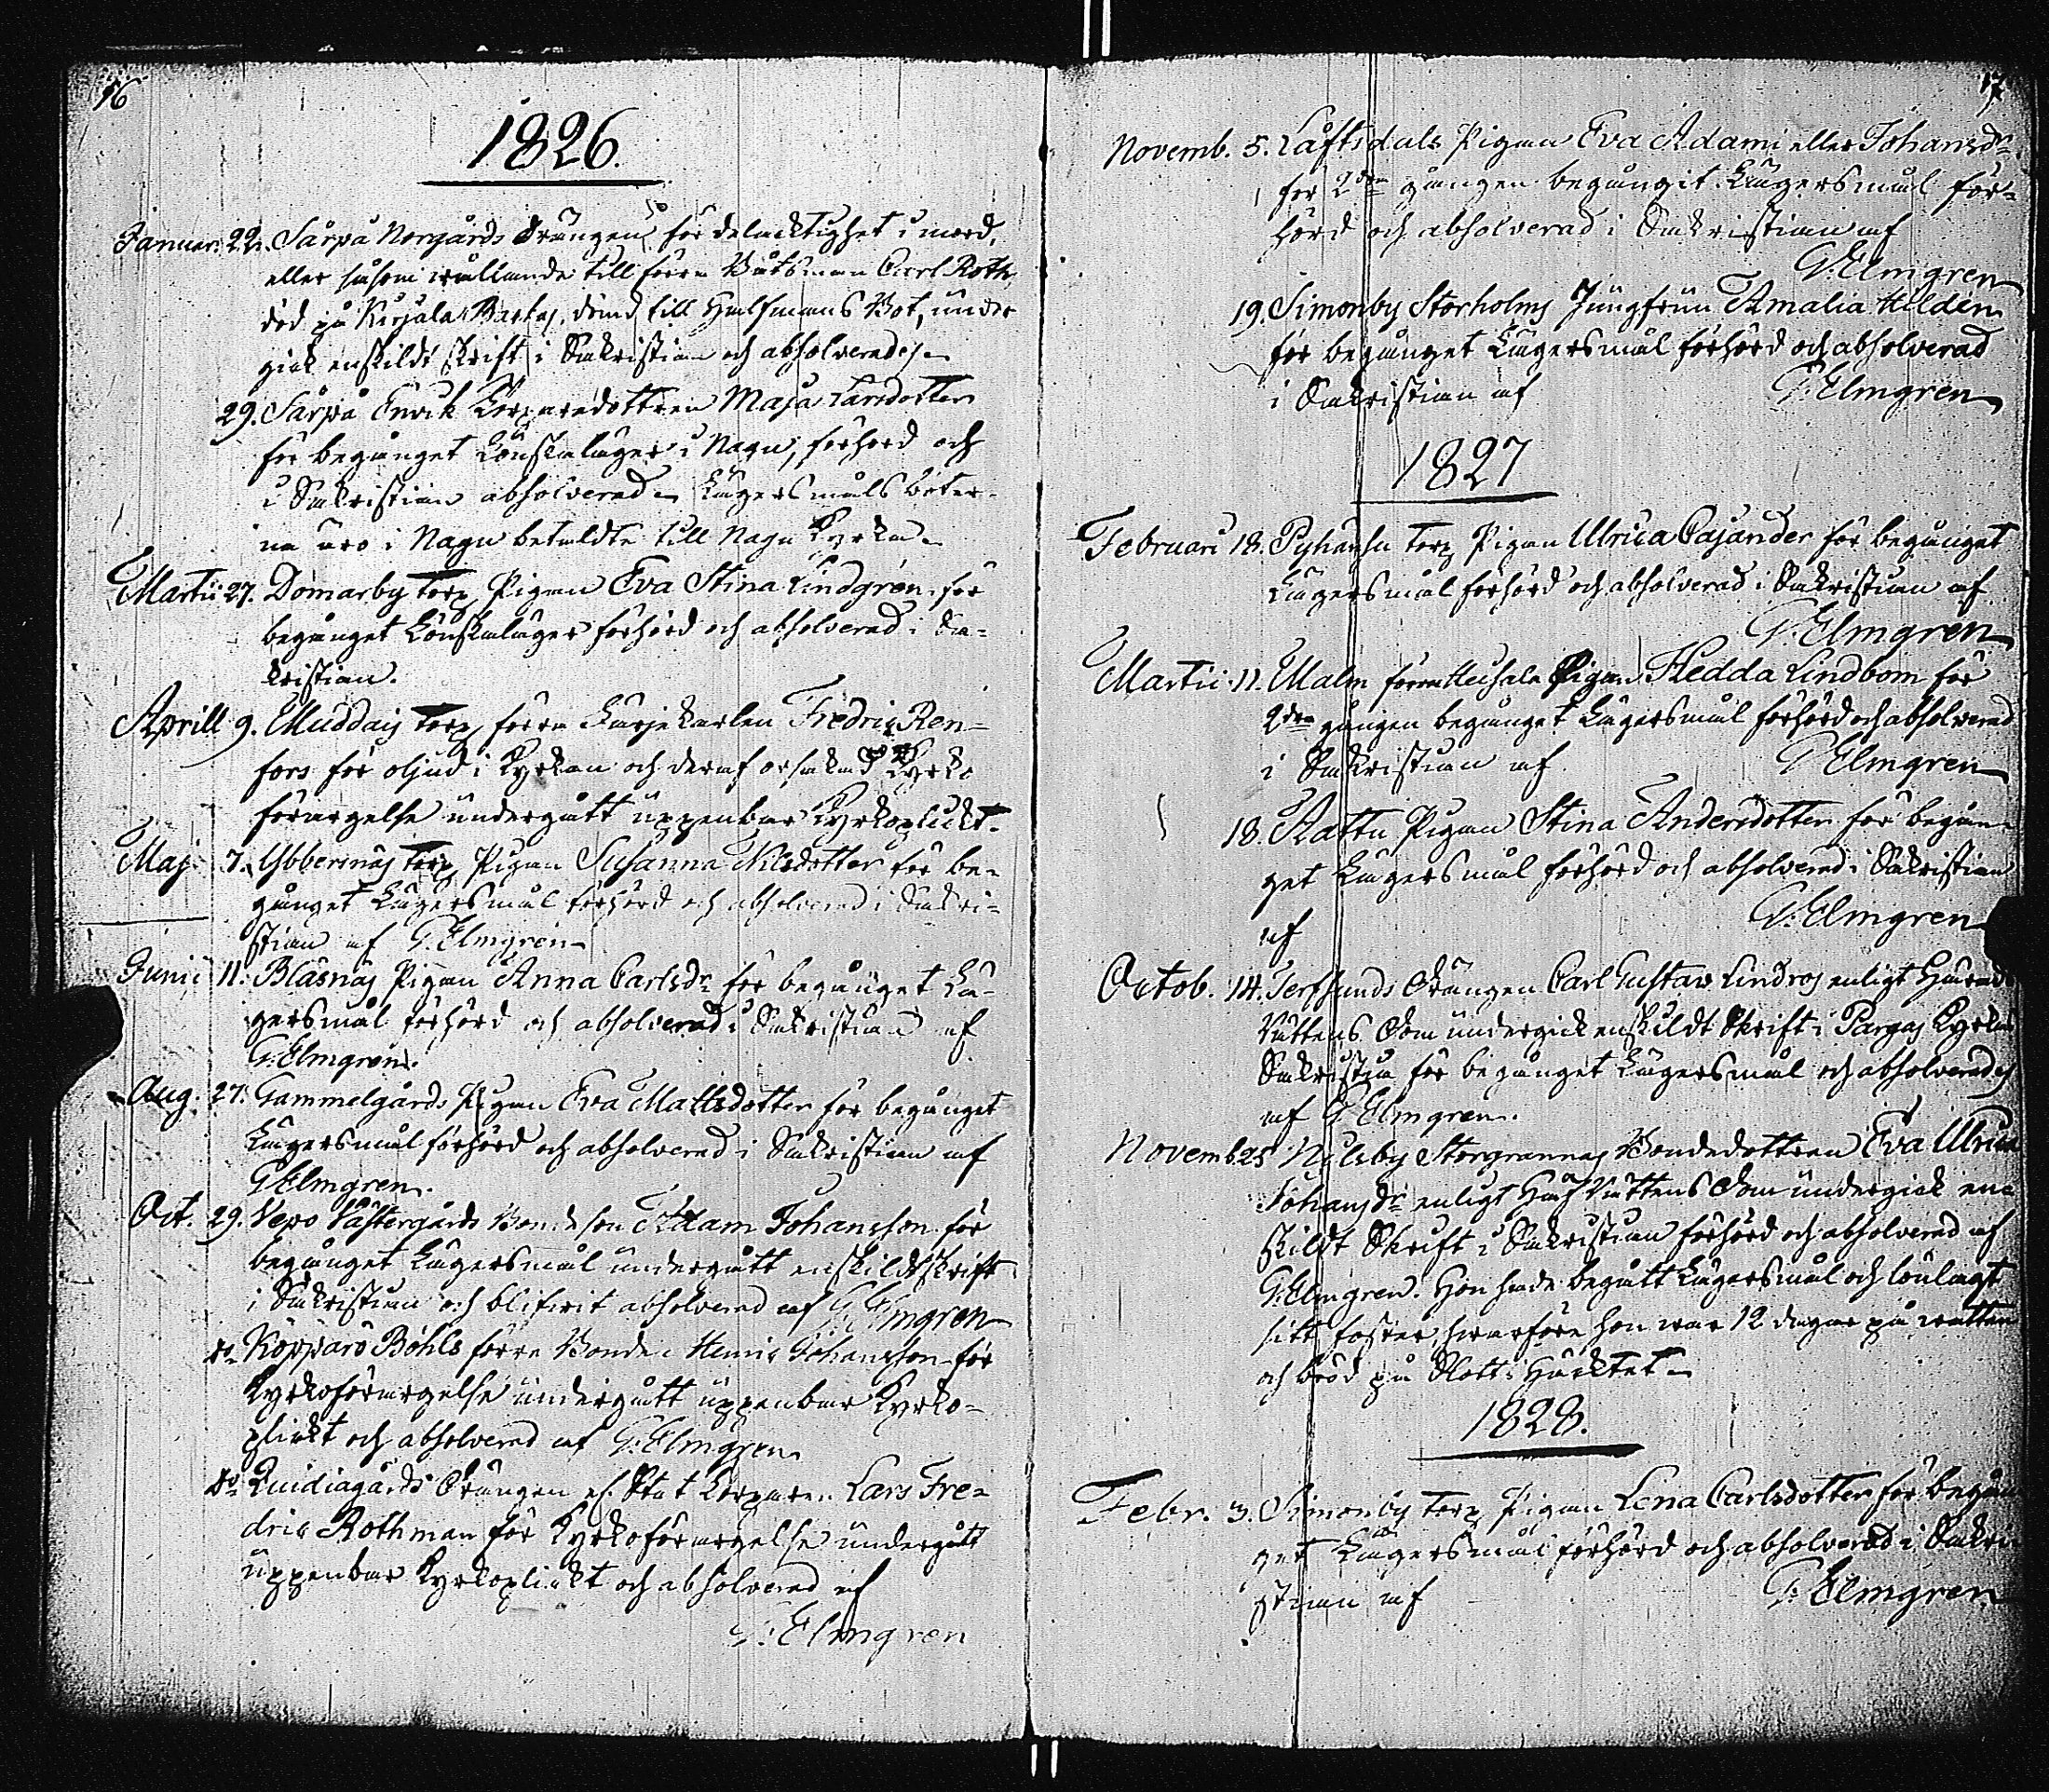 16
1826.
Januar. 22. Sårpå Norgårds Drängen för delacktighet i mord,
eller såsom wållande till förra Båtsman Carl Roths
död på Kirjala Bactas, dömd till Halfmans Bot, under
gick enskildt skrift i Sakristian och absolverades.
29. Sårpå Envik Torparedottren Maja Larsdotter
för begånget Lönskaläger i Nagu, förhörd och
i Sakristian absolverad. Lägersmåls böter-
na äro i Nagu betaldte till Nagu Kyrka.
Martii 27. Domarby Torp Pigan Eva Stina Lindgren för
begånget Lönskaläger förhörd och absolverad i Sa-
kristian.
Aprill 9. Muddais Torp förra Farjekarlen Fredric Ren-
fors för oljud i Kyrkan och deraf orsakad Kyrko
förargelse undergått uppenbar Kyrkoplickt.
Maj 7. Ybbersnäs Torp Pigan Susanna Nilsdotter för be-
gånget Lägersmål förhörd och absolverad i Sakri-
stian af G. Elmgren
Junii 11. Bläsnäs Pigan Anna Carlsdr för begånget Lä-
gersmål förhörd och absolverad i Sakristian af
G. Elmgren.
Aug. 27. Gammelgårds Pigan Eva Mattsdotter för begånget
Lägersmål förhörd och absolverad i Sakristian af
G Elmgren.
Oct. 29. Vepo Västergårds Bonde son Adam Johansson för
begånget Lägersmål undergått enskildt skrift
i Sakristian och blifwit absolverad af G Elmgren
do Kopparö Böhls förra Bonden Henric Johansson för
Kyrkoförargelse undergått uppenbar Kyrko-
plickt och absolverad af G. Elmgren
do Quidiagårds Drängen Stat Torparen Lars Fre-
dric Rothman för Kyrkoförargelse undergått
uppenbar Kyrkoplickt och absolverad af
G. Elmgren
17
Novemb. 5. Låftsdals Pigan Eva Adami eller Johansdr
för 2dra gången begångit Lägersmål för-
hörd och absolverad i Sakristian af
G. Elmgren
19. Simonby Storholms Jungfrun Amalia Hilden
för begånget Lägersmål förhörd och absolverad
i Sakristian af G. Elmgren
1827
Februari 18. Pyhänsu Torp Pigan Ulrica Cajander för begånget
Lägersmål förhörd och absolverad i Sakristian af
G. Elmgren
Martii 11. Malm förra Pigan Hedda Lindbom för
2dra gången begånget Lägersmål förhörd och absolverad
i Sakristian af G Elmgren
18. Attu Pigan Stina Andersdotter för begån-
get Lägersmål förhörd och absolverad i Sakristian
af G. Elmgren
Octob. 14. Terfsunds Drängen Carl Gustav Lindros enligt Härads
Rättens Dom undergick enskildt Skrift i Pargas Kyrkas
Sakristia för begånget Lägersmål och absolverades
af G Elmgren.
Novemb. 25 Nilsby Storgrannas Bondedottren Eva Ulrica
Johansdr enligt Hofrättens Dom undergick en-
skildt Skrift i Sakristian förhörd och absolverad af
G. Elmgren. Hon hade begått Lägersmål och lönlagt
sitt foster hwarföre hon war 12 dagar på watten
och bröd på Slotts Häcktet
1828.
Febr. 3. Simonby Torp Pigan Lena Carlsdotter för begån
get Lägersmål förhörd och absolverad i Sakri
stian af G. Elmgren